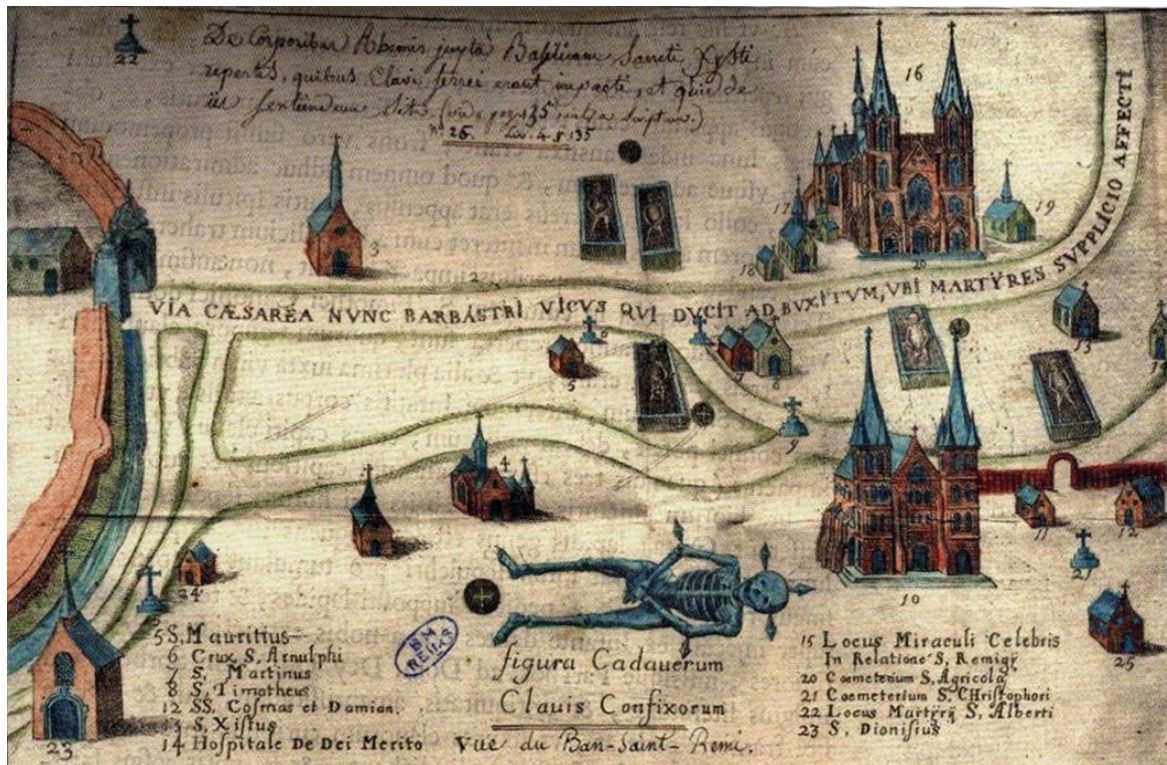 De Corporibus Rhemis juxta Basilicam Sancti Xysti
repertis, quibus Clavi ferrei erant impacti, et quid de
iis sentiendum sit. (vide pag. 135
nº 26. Liv. 4. § 135
22
16
3
17
19
18
2
20
VIA CÆSARËA NVNC BARBÁSTRI VICVS QVI DVCIT AD BVXITVM, VBI MARTŸRES SVPPLICIO AFFECTI
6
5
7
8
13
9
4
11
12
24
21
10
25
23
BM
REIMS
5 S. Mauritius
6 Crux S. Arnulphi
7 S. Martinus
8 S. Timotheus
12 SS. Cosmas et Damian.
13 S. Xistus
14 Hospitale De Dei Merito
figura Cadauerum
Clauis Confixorum
Vue du Ban-Saint-Remi.
15 Locus Miraculi Celebris
In Relatione S. Remigÿ
20 Coemeterium S. Agricola
21 Coemeterium S. CHristophori
22 Locus Martÿrÿ S. Alberti
23 S. Dionisius